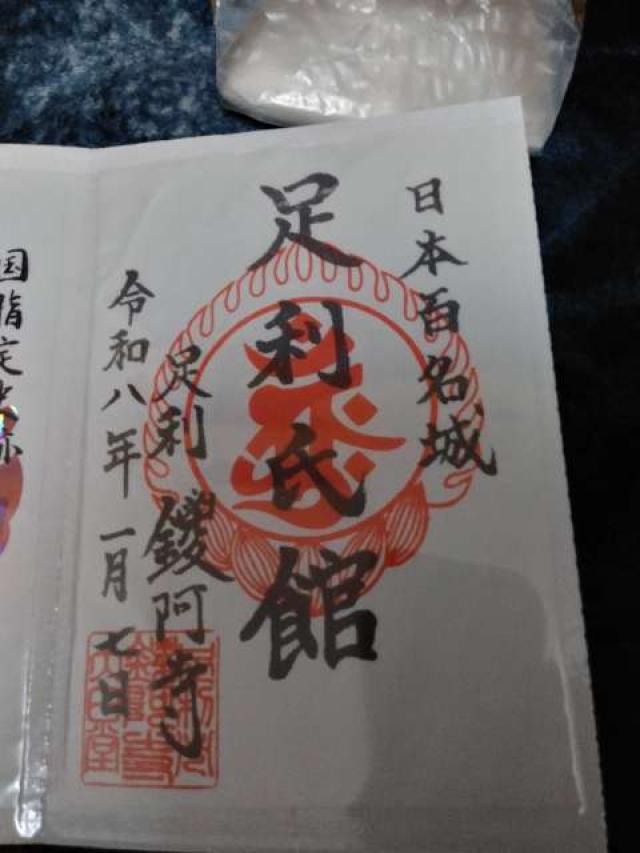 日本百名城
足利氏館
足利 鑁阿寺
令和八年 一月 七日
国指定